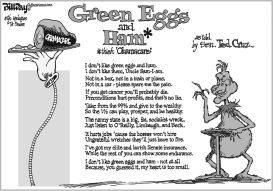 Bill Day
with apologies to Dr. Seuss
OBAMACARE
Green Eggs
and
Ham*
*that "Obamacare"
as told by
Sen. Ted Cruz...
I do not like green eggs and ham.
I don't like them, Uncle Sam-I-am.
Not in a box, not in a train or plane,
Not in a car - please spare me the pain.
If you get cancer you'll probably die.
Preconditions hurt profits, and that's no lie.
Take from the 99% and give to the wealthy
So the 1% can play, prosper, and be healthy.
The nanny state is a big, fat, socialist wreck.
Just listen to O'Reilly, Limbaugh, and Beck.
It hurts jobs 'cause the bosses won't hire
Ungrateful wretches they'll just have to fire.
I've got my elite and lavish Senate insurance.
While the rest of you can show some endurance.
I don't like green eggs and ham - not at all
Because, you guessed it, my heart is too small.